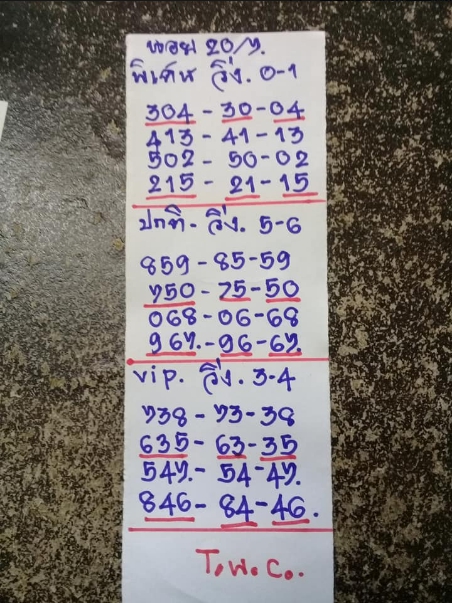 หอย 20/7.
พิเศษ วิ่ง. 0-1
304 - 30 - 04
413 - 41 - 13
502 - 50 - 02
215 - 21 - 15
ปกติ - วิ่ง. 5-6
859 - 85 - 59
750 - 75 - 50
068 - 06 - 68
967. - 96 - 67.
vip. วิ่ง. 3-4
738 - 73 - 38
635 - 63 - 35
547. - 54 - 47.
846 - 84 - 46.
T.W.C..